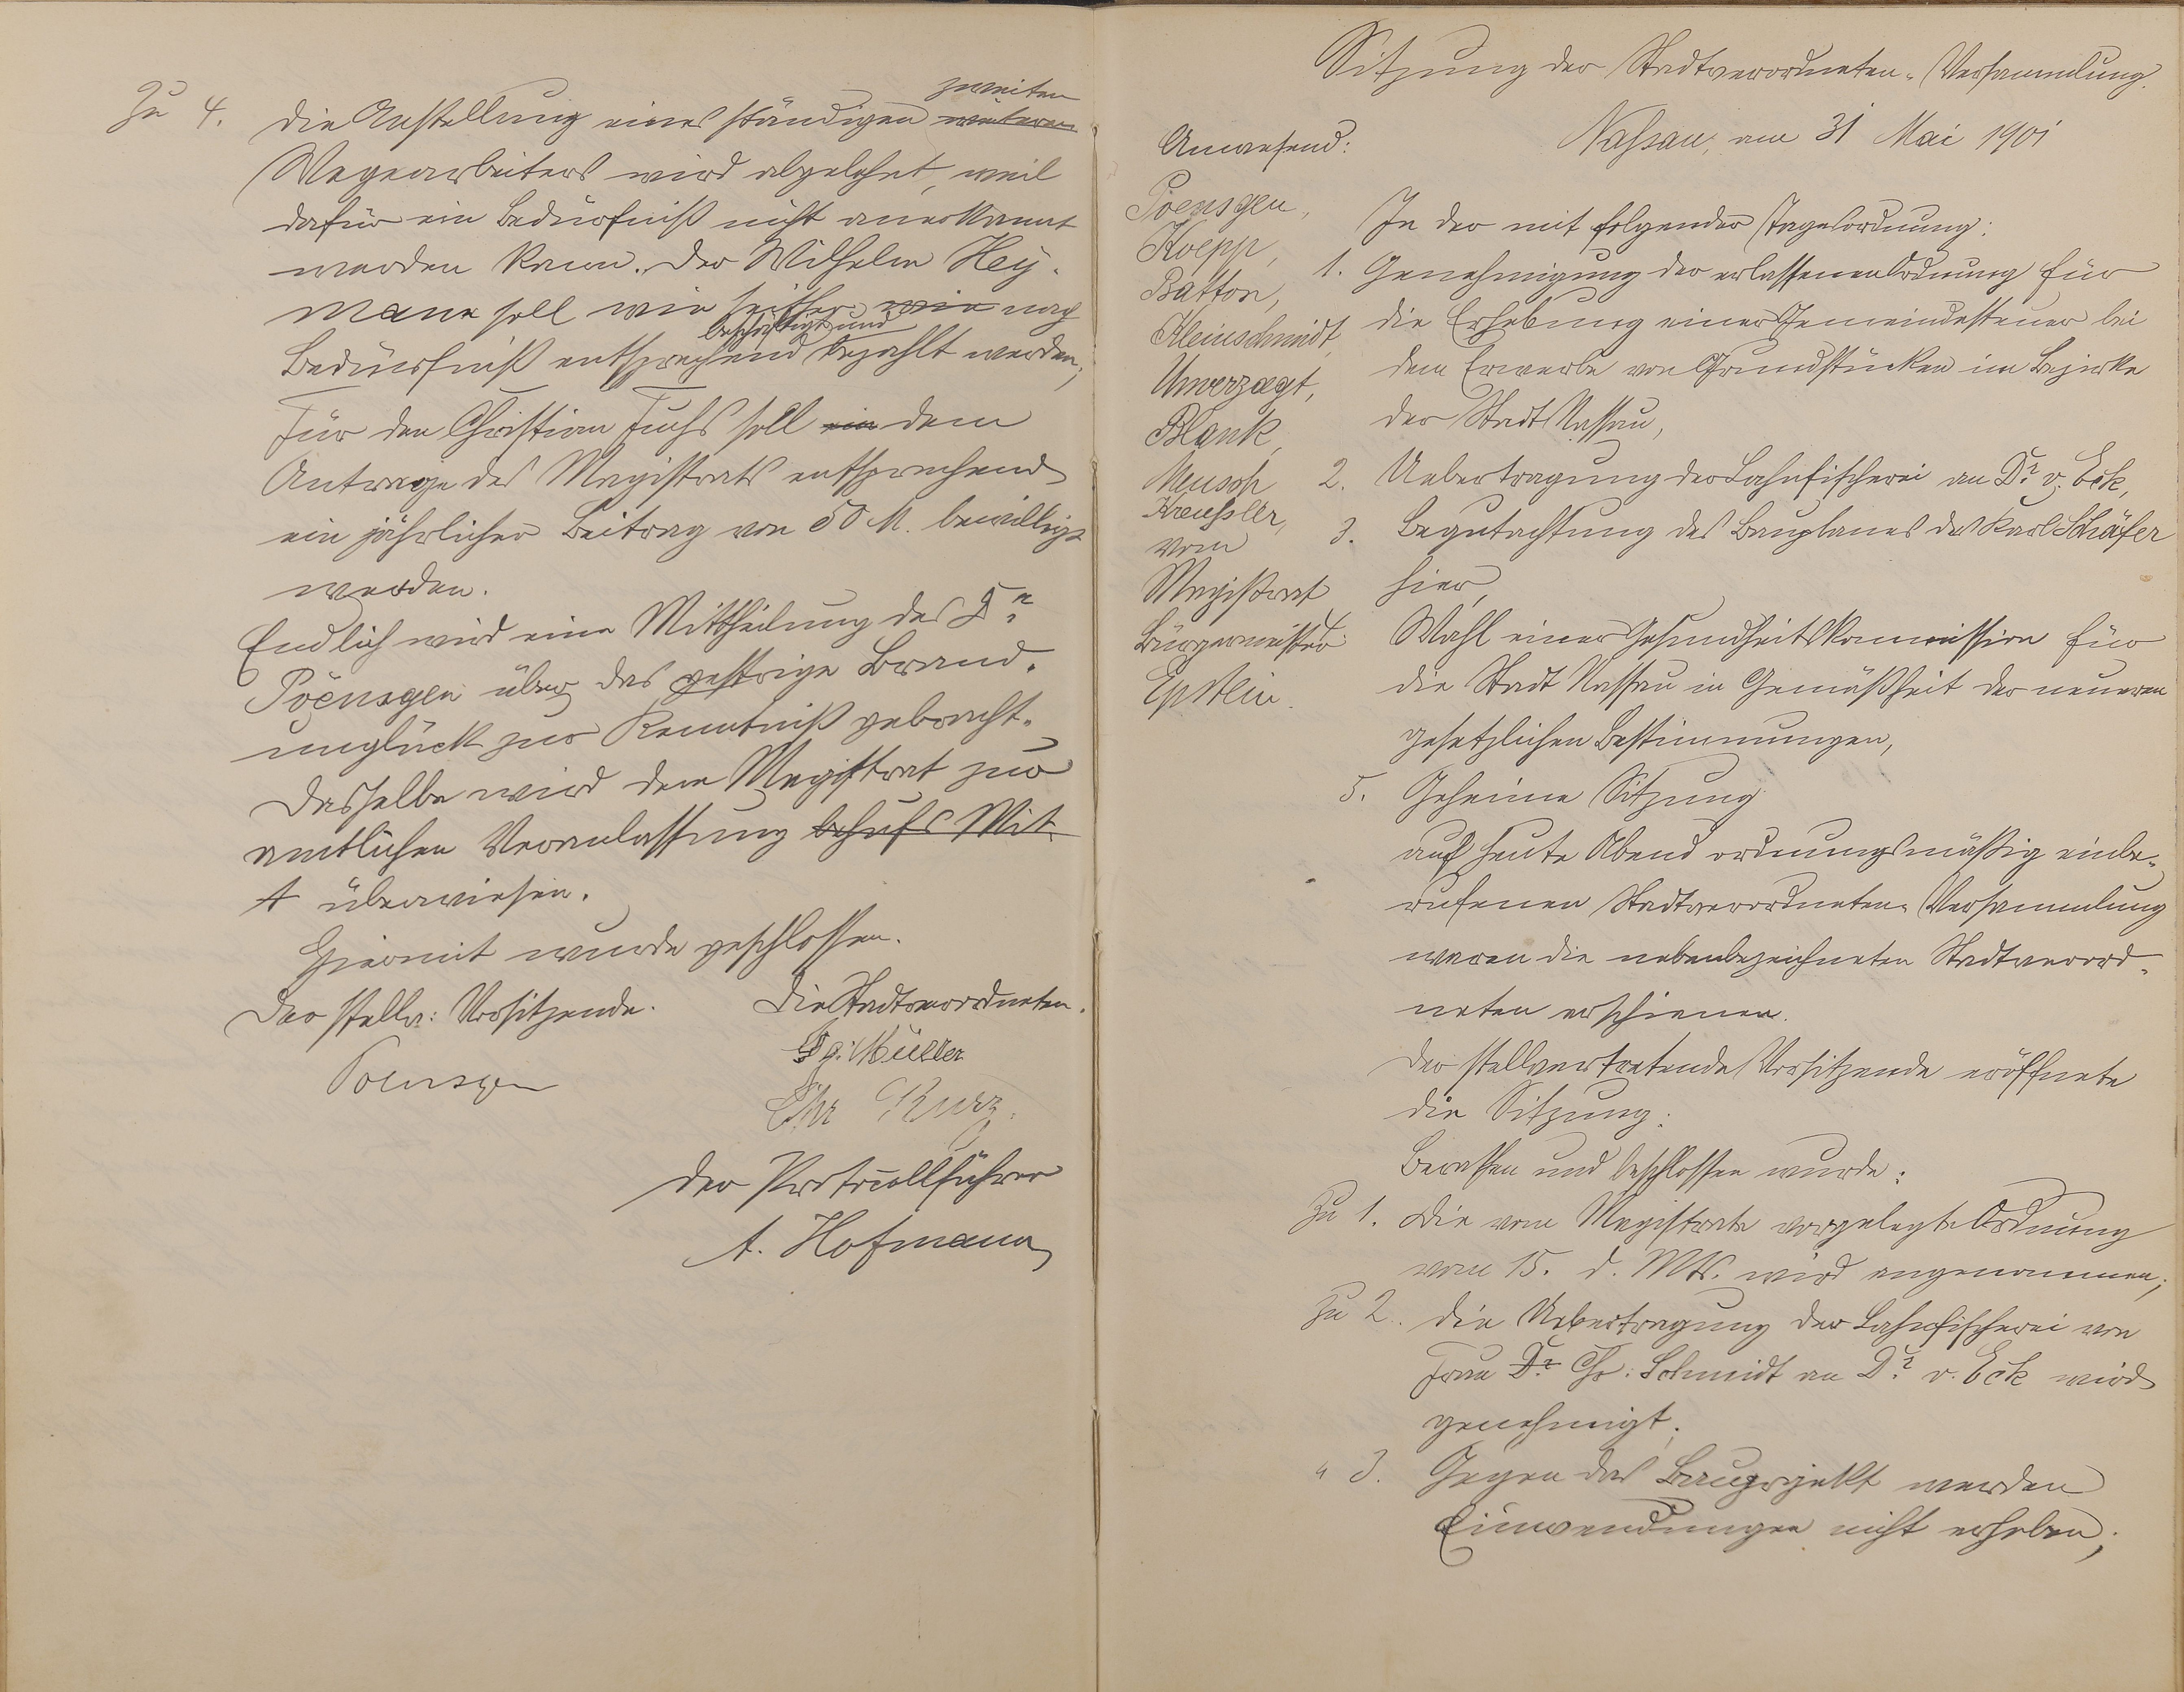 zweiten
Zu 4. Die Anstellung eines ständigen weiteren
Wegearbeiters wird abgelehnt, weil
dafür ein Bedürfniß nicht anerkannt
werden kann. Der Wilhelm Hey-
mann soll wie seither wie nach
beschäftigt und
Bedürfniß entsprechend bezahlt werden;
Für den Christian Fuchs soll ein dem
Antrage des Magistrats entsprechend
ein jährlicher Beitrag von 50 M. bewilligt
werden.
Endlich wird eine Mittheilung des Dr.
Poensgen über das gestrige Brand-
unglück zur Kenntniß gebracht.
Dasselbe wird dem Magistrat zur
amtlichen Veranlassung behufs Mit-
t überwiesen.
Hiermit wurde geschlossen.
Der stellv: Vorsitzende. Die Stadtverordneten.
Poensgen
Gg: Müller
Chr Kurz.
Der Protocollführer
A. Hofmann
Sitzung der Stadtverordneten-Versammlung.
Nassau, am 31 Mai 1901
Anwesend:
Poensgen,
Koepp,
Batton,
Kleinschmidt,
Unverzagt,
Blank,
Meusch
Kreußler,
vom
Magistrat
Bürgermeister
Epstein.
In der mit folgender Tagesordnung:
1. Genehmigung der erlassenen Ordnung für
die Erhebung einer Gemeindesteuer bei
dem Erwerbe von Grundstücken im Bezirke
der Stadt Nassau,
2. Uebertragung der Lahnfischerei an Dr. v. Eck,
3. Begutachtung des Bauplanes des Karl Schäfer
hier,
4. Wahl einer Gesundheitskommission für
die Stadt Nassau in Gemäßheit der neueren
gesetzlichen Bestimmungen,
5. Geheime Sitzung
auf heute Abend ordnungsmäßig einbe-
rufenen Stadtverordneten-Versammlung
waren die nebenbezeichneten Stadtverord-
neten erschienen.
Der stellvertretende Vorsitzende eröffnete
die Sitzung.
Berathen und beschlossen wurde:
Zu 1. Die vom Magistrate vorgelegte Ordnung
vom 15. d. Mts. wird angenommen;
Zu 2. Die Uebertragung der Lahnfischerei von
Frau Dr. Chr: Schmidt an Dr. v. Eck wird
genehmigt;
" 3. Gegen das Bauprojekt werden
Einwendungen nicht erhoben;